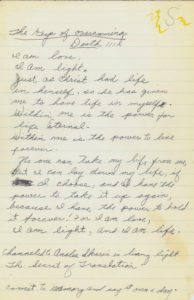 S
The Keys of overcoming
Death
I am love,
I am light,
Just as Christ had life
in himself, so he has given
me to have life in myself.
Within me is the power for
life eternal.
Within me is the power to live
forever.
No one can take my life from me,
But I can lay down my life, if
I choose, and I have the
power to take it up again,
because I have the power to hold
it forever. For I am love,
I am light, and I am life.
Channeled to in living light
The Secret of Translation
commit to memory and say 3 once a day.